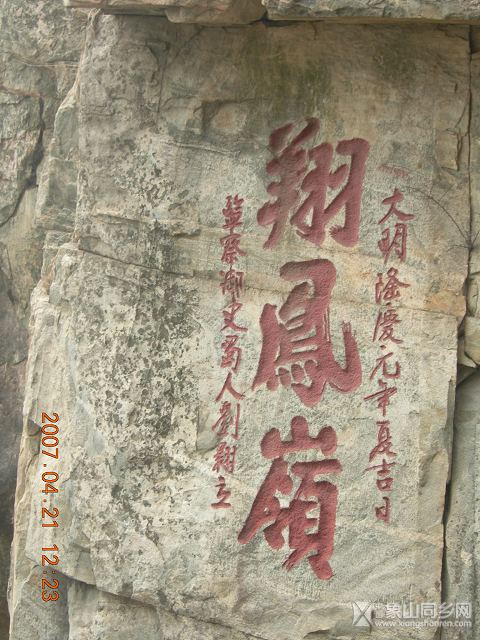 大明隆慶元年夏吉日
翔鳳嶺
監察御史蜀人劉翾立
2007.04.21 12:23
象山同乡网
www.xiangshanren.com